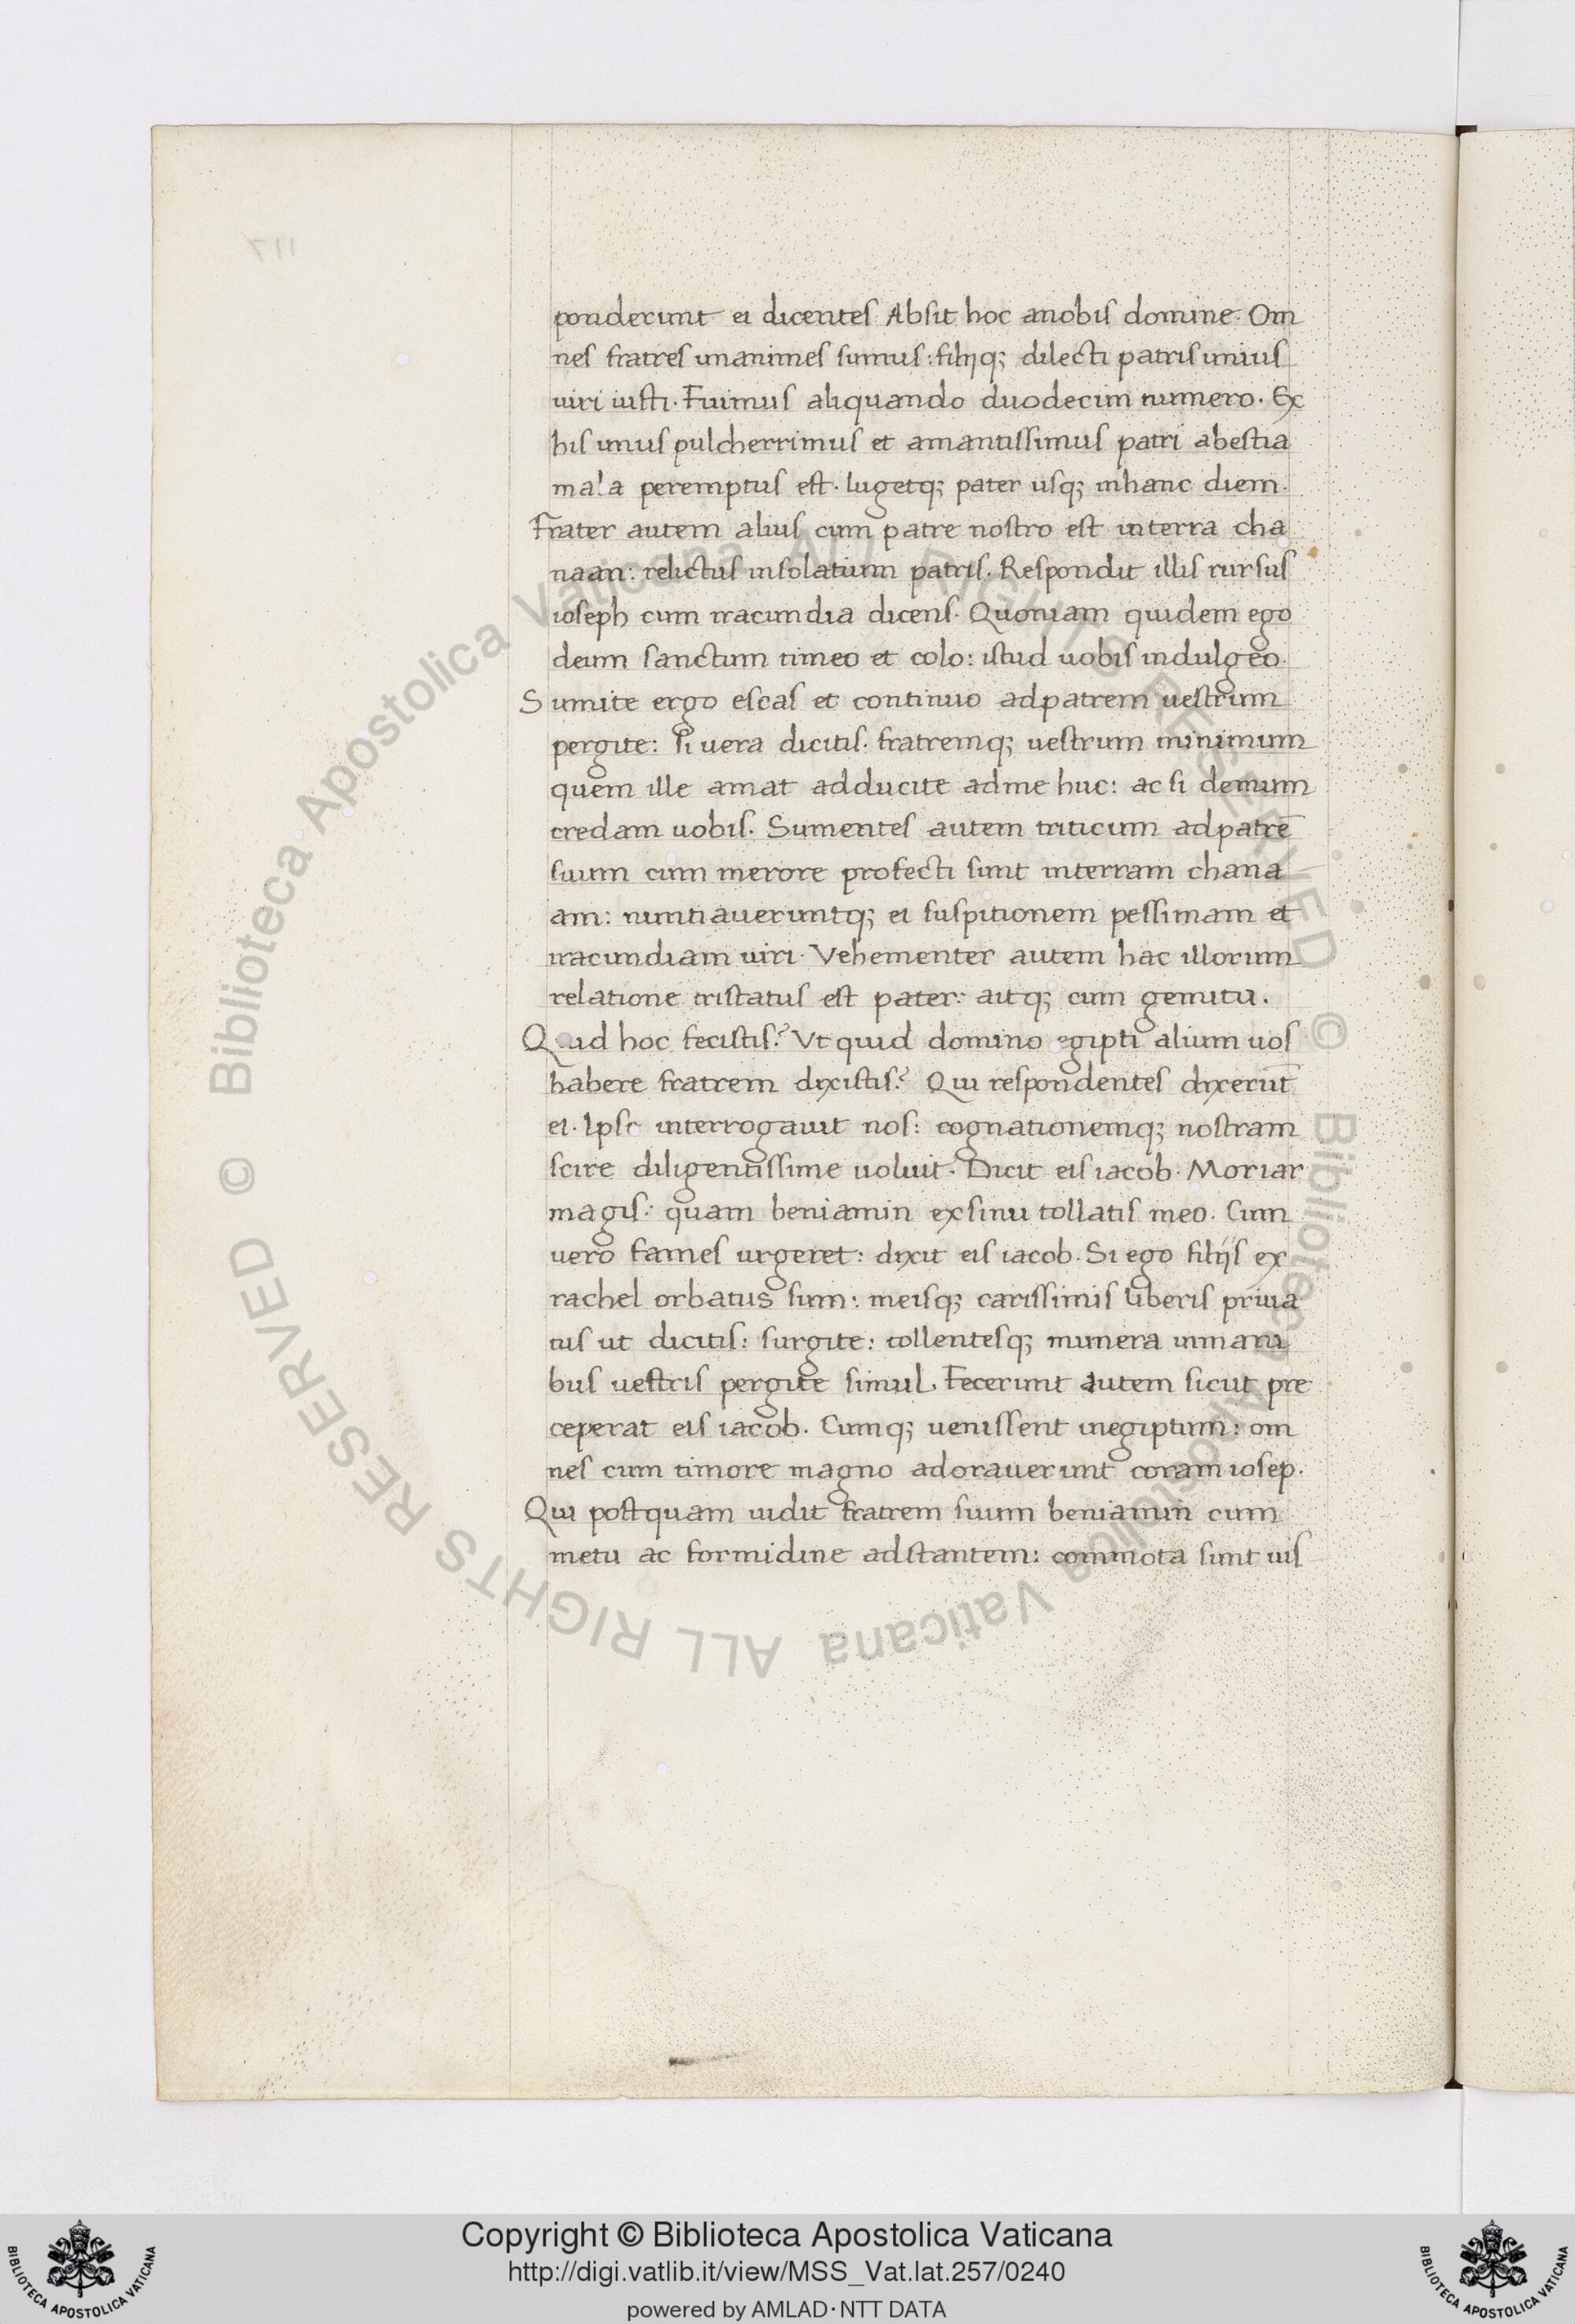 ponderunt ei dicentes Absit hoc anobis domine. Om
nes fratres unanimes sumus: filijq; dilecti patris unius
uiri iusti. Fuimus aliquando duodecim numero. Ex
his unus pulcherrimus et amantissimus patri abestia
mala peremptus est. lugetq; pater usq; inhanc diem.
Frater autem alius cum patre nostro est interra cha
naan: relictus insolatium patris. Respondit illis rursus
ioseph cum iracundia dicens. Quoniam quidem ego
deum sanctum timeo et colo: istud uobis indulgeo.
Sumite ergo escas et continuo adpatrem uestrum
pergite: si uera dicitis. fratremq; uestrum minimum
quem ille amat adducite adme huc: ac si demum
credam uobis. Sumentes autem triticum adpatrē
suum cum merore profecti sunt interram chana
am: nuntiaueruntq; ei suspitionem pessimam et
iracundiam uiri. Vehementer autem hac illorum
relatione tristatus est pater: aitq; cum gemitu.
Quid hoc fecistis? Vt quid domino egipti alium uos
habere fratrem dixistis? Qui respondentes dixerūt
ei. Ipse interrogauit nos: cognationemq; nostram
scire diligentissime uoluit. Dicit eis iacob. Moriar
magis: quam beniamin exsinu tollatis meo. Cum
uero fames urgeret: dixit eis iacob. Si ego filijs ex
rachel orbatus sum: meisq; carissimis liberis priua
tus ut dicitis: surgite: tollentesq; munera inmani
bus uestris pergite simul. Fecerunt autem sicut pre
ceperat eis iacob. Cumq; uenissent inegiptum: om
nes cum timore magno adorauerunt coram iosep.
Qui postquam uidit fratrem suum beniamin cum
metu ac formidine adstantem: commota sunt uis
© Biblioteca Apostolica Vaticana ALL RIGHTS RESERVED © Biblioteca Apostolica Vaticana ALL RIGHTS RESERVED
BIBLIOTECA APOSTOLICA VATICANA
Copyright © Biblioteca Apostolica Vaticana
http://digi.vatlib.it/view/MSS_Vat.lat.257/0240
powered by AMLAD·NTT DATA
BIBLIOTECA APOSTOLICA VATICANA